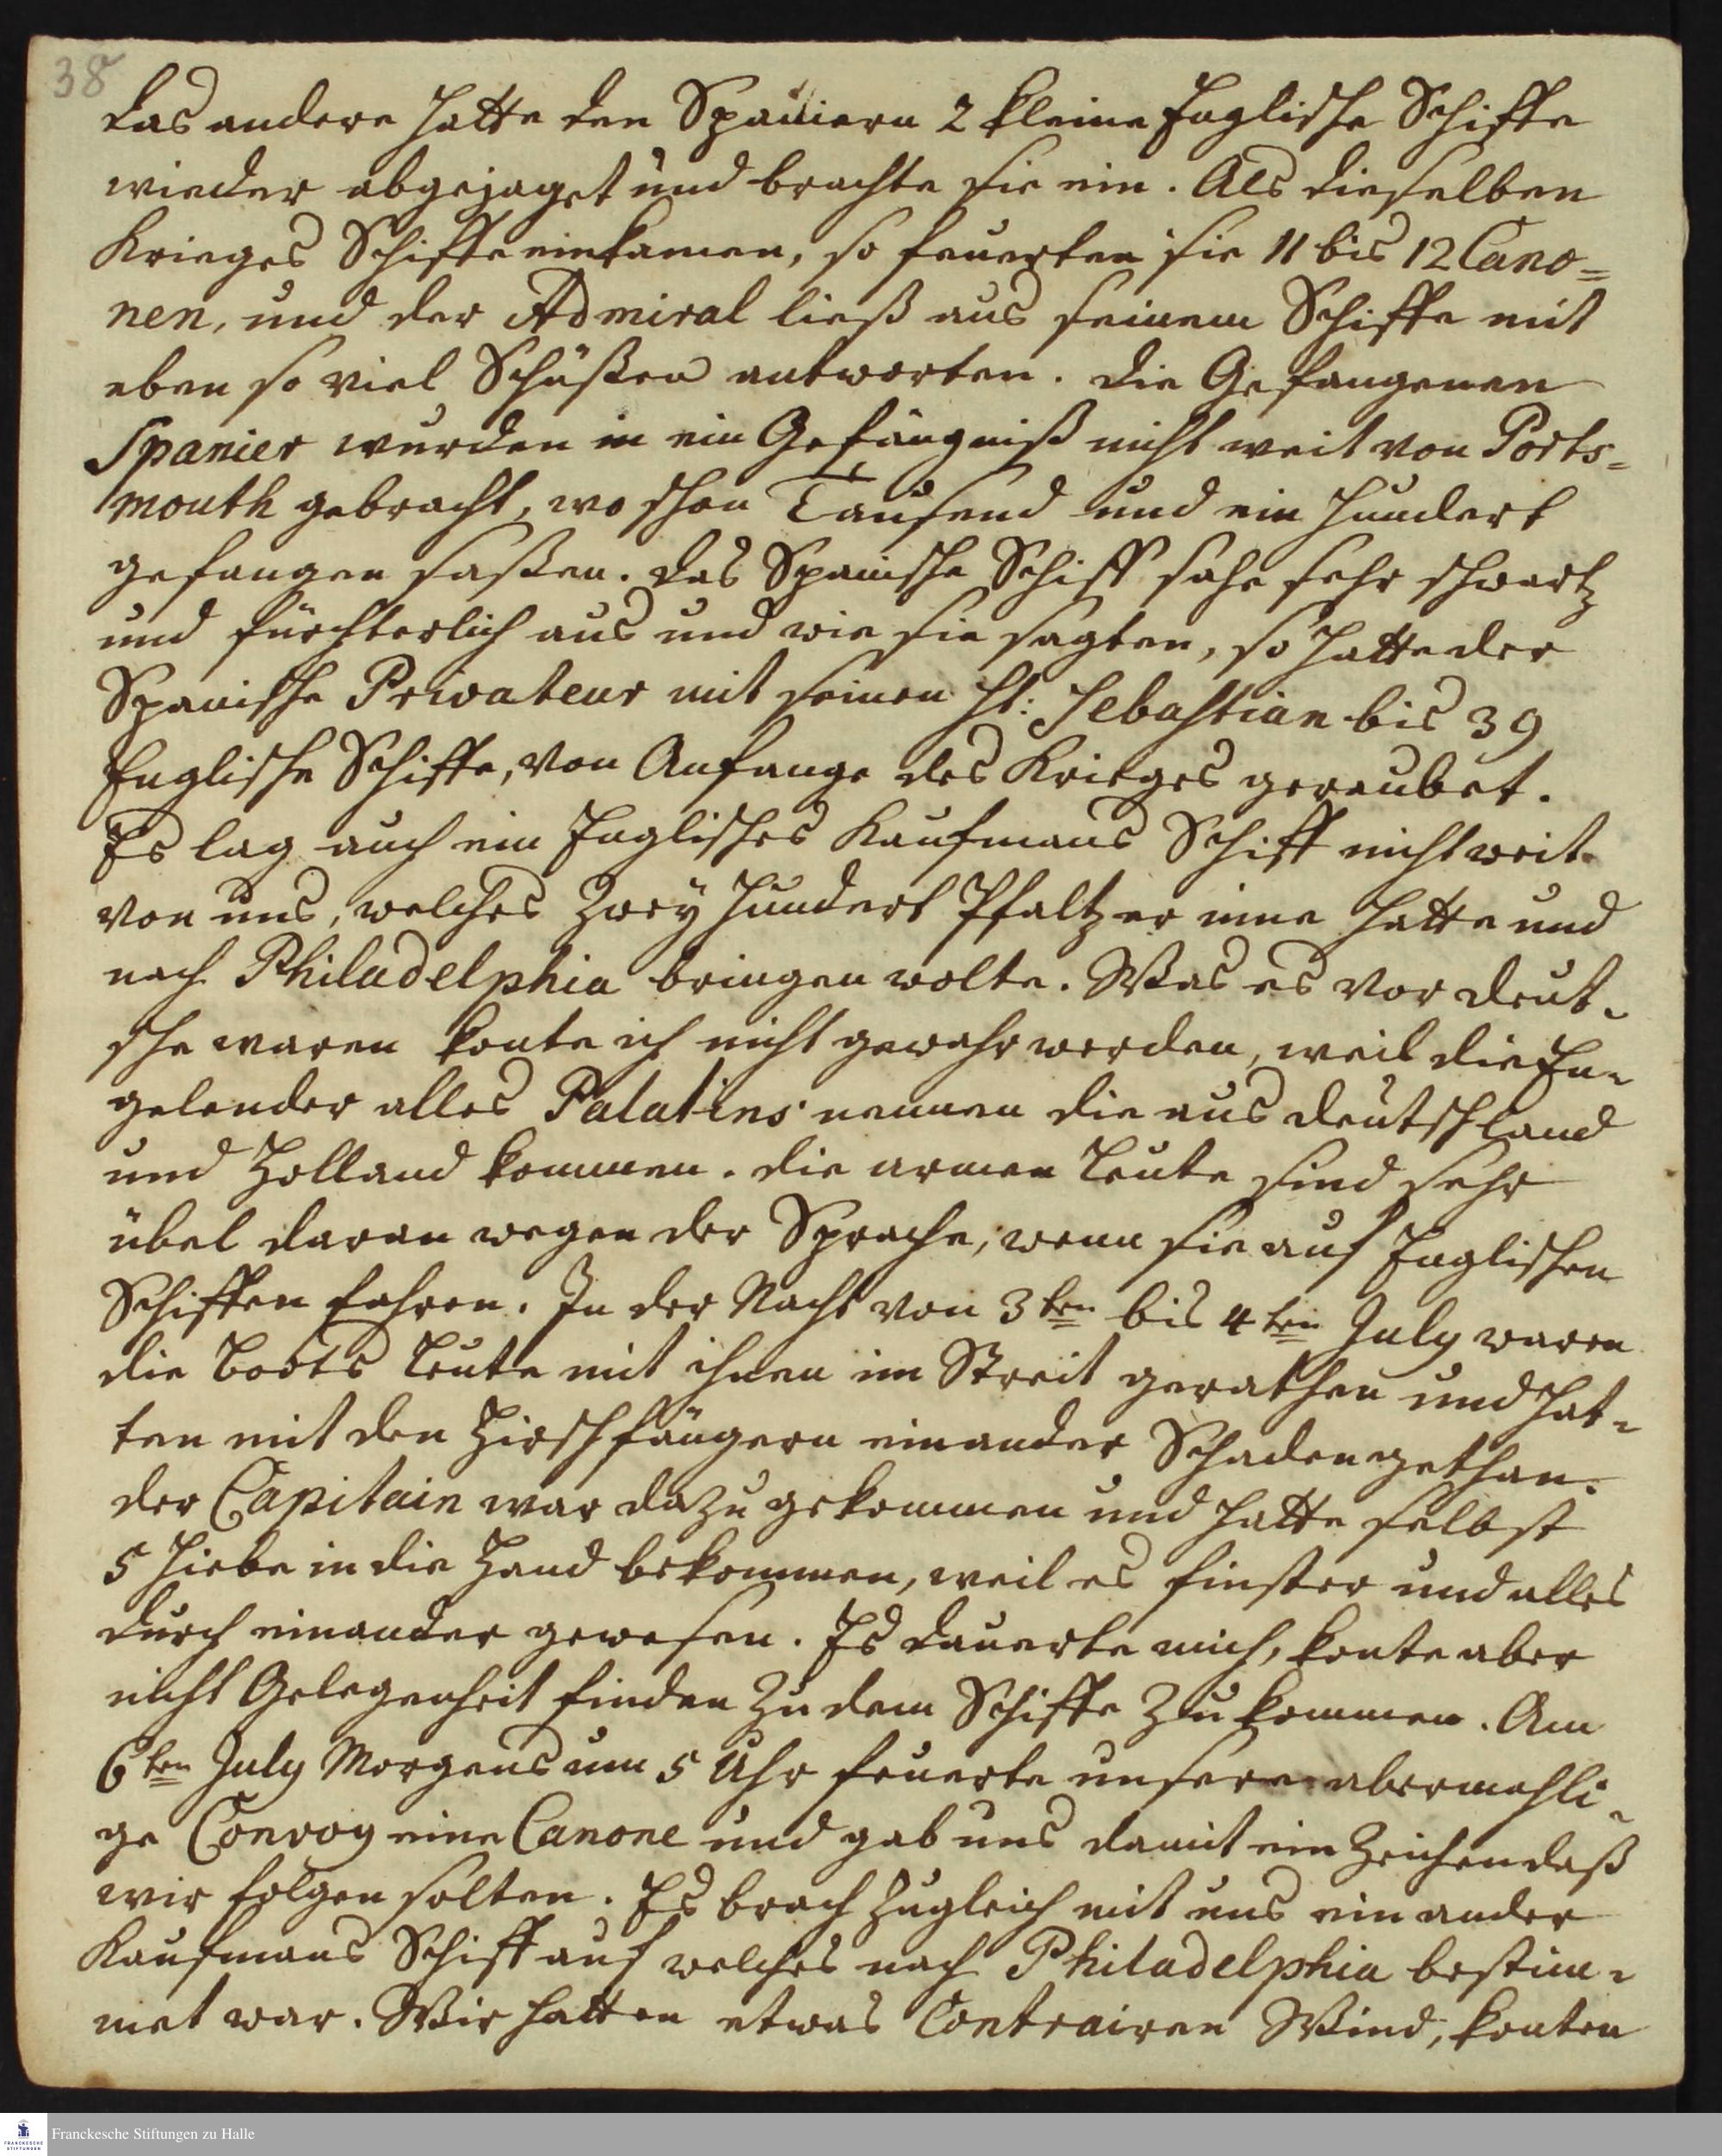 38
das andere hatte den Spaniern 2 kleine Englische Schiffe
wieder abgejaget und brachte sie ein. Als dieselben
Krieges Schiffe einkamen, so feuerten sie 11 bis 12 Cano=
nen, und der Admiral ließ aus seinem Schiffe mit
eben so viel Schüßen antworten. Die Gefangenen
Spanier wurden in ein Gefängniß nicht weit von Ports=
mouth gebracht, wo schon Tausend und ein Hundert
gefangen saßen. Das Spanische Schiff sahe sehr schwartz
und fürchterlich aus und wie sie sagten, so hatte der
Spanische Privateur mit seinen St: Sebastian bis 39
Englische Schiffe, von Anfange des Krieges geraubet.
Es lag auch ein Englisches Kaufmans Schiff nicht weit
von uns, welches Zwey Hundert Pfaltzer inne hatte und
nach Philadelphia bringen wolte. Was es vor Deut-
sche waren konte ich nicht gewahr werden, weil die En-
gelender alles Palatins nennen die aus Deutschland
und Holland kommen. Die armen Leute sind sehr
übel daran wegen der Sprache, wenn sie auf Englischen
Schiffen fahren. In der Nacht von 3ten bis 4ten July waren
die Boots Leute mit ihnen im Streit gerathen und hat-
ten mit den Hirschfängern einander Schaden gethan.
der Capitain war dazu gekommen und hatte selbst
5 Hiebe in die Hand bekommen, weil es finster und alles
durch einander gewesen. Es dauerte mich, konte aber
nicht Gelegenheit finden zu dem Schiffe zu kommen. Am
6ten July Morgens um 5 Uhr feuerte unsere abermahli-
ge Convoy eine Canone und gab uns damit ein Zeichen daß
wir folgen solten. Es brach zugleich mit uns ein ander
Kaufmans Schiff auf welches nach Philadelphia bestim-
met war. Wir hatten etwas Contrairen Wind, konten
Franckesche Stiftungen zu Halle
FRANCKESCHE
STIFTUNGEN